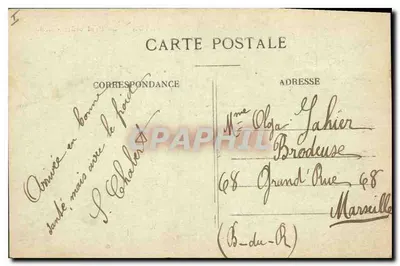 I
CARTE POSTALE
CORRESPONDANCE
ADRESSE
Arrivée en bonne
santé, mais avec le froid
S. Chabert
Mme Olga Jahier
Brodeuse
68 Grand'Rue 68
Marseille
(B-du-R)
CPAPHIL